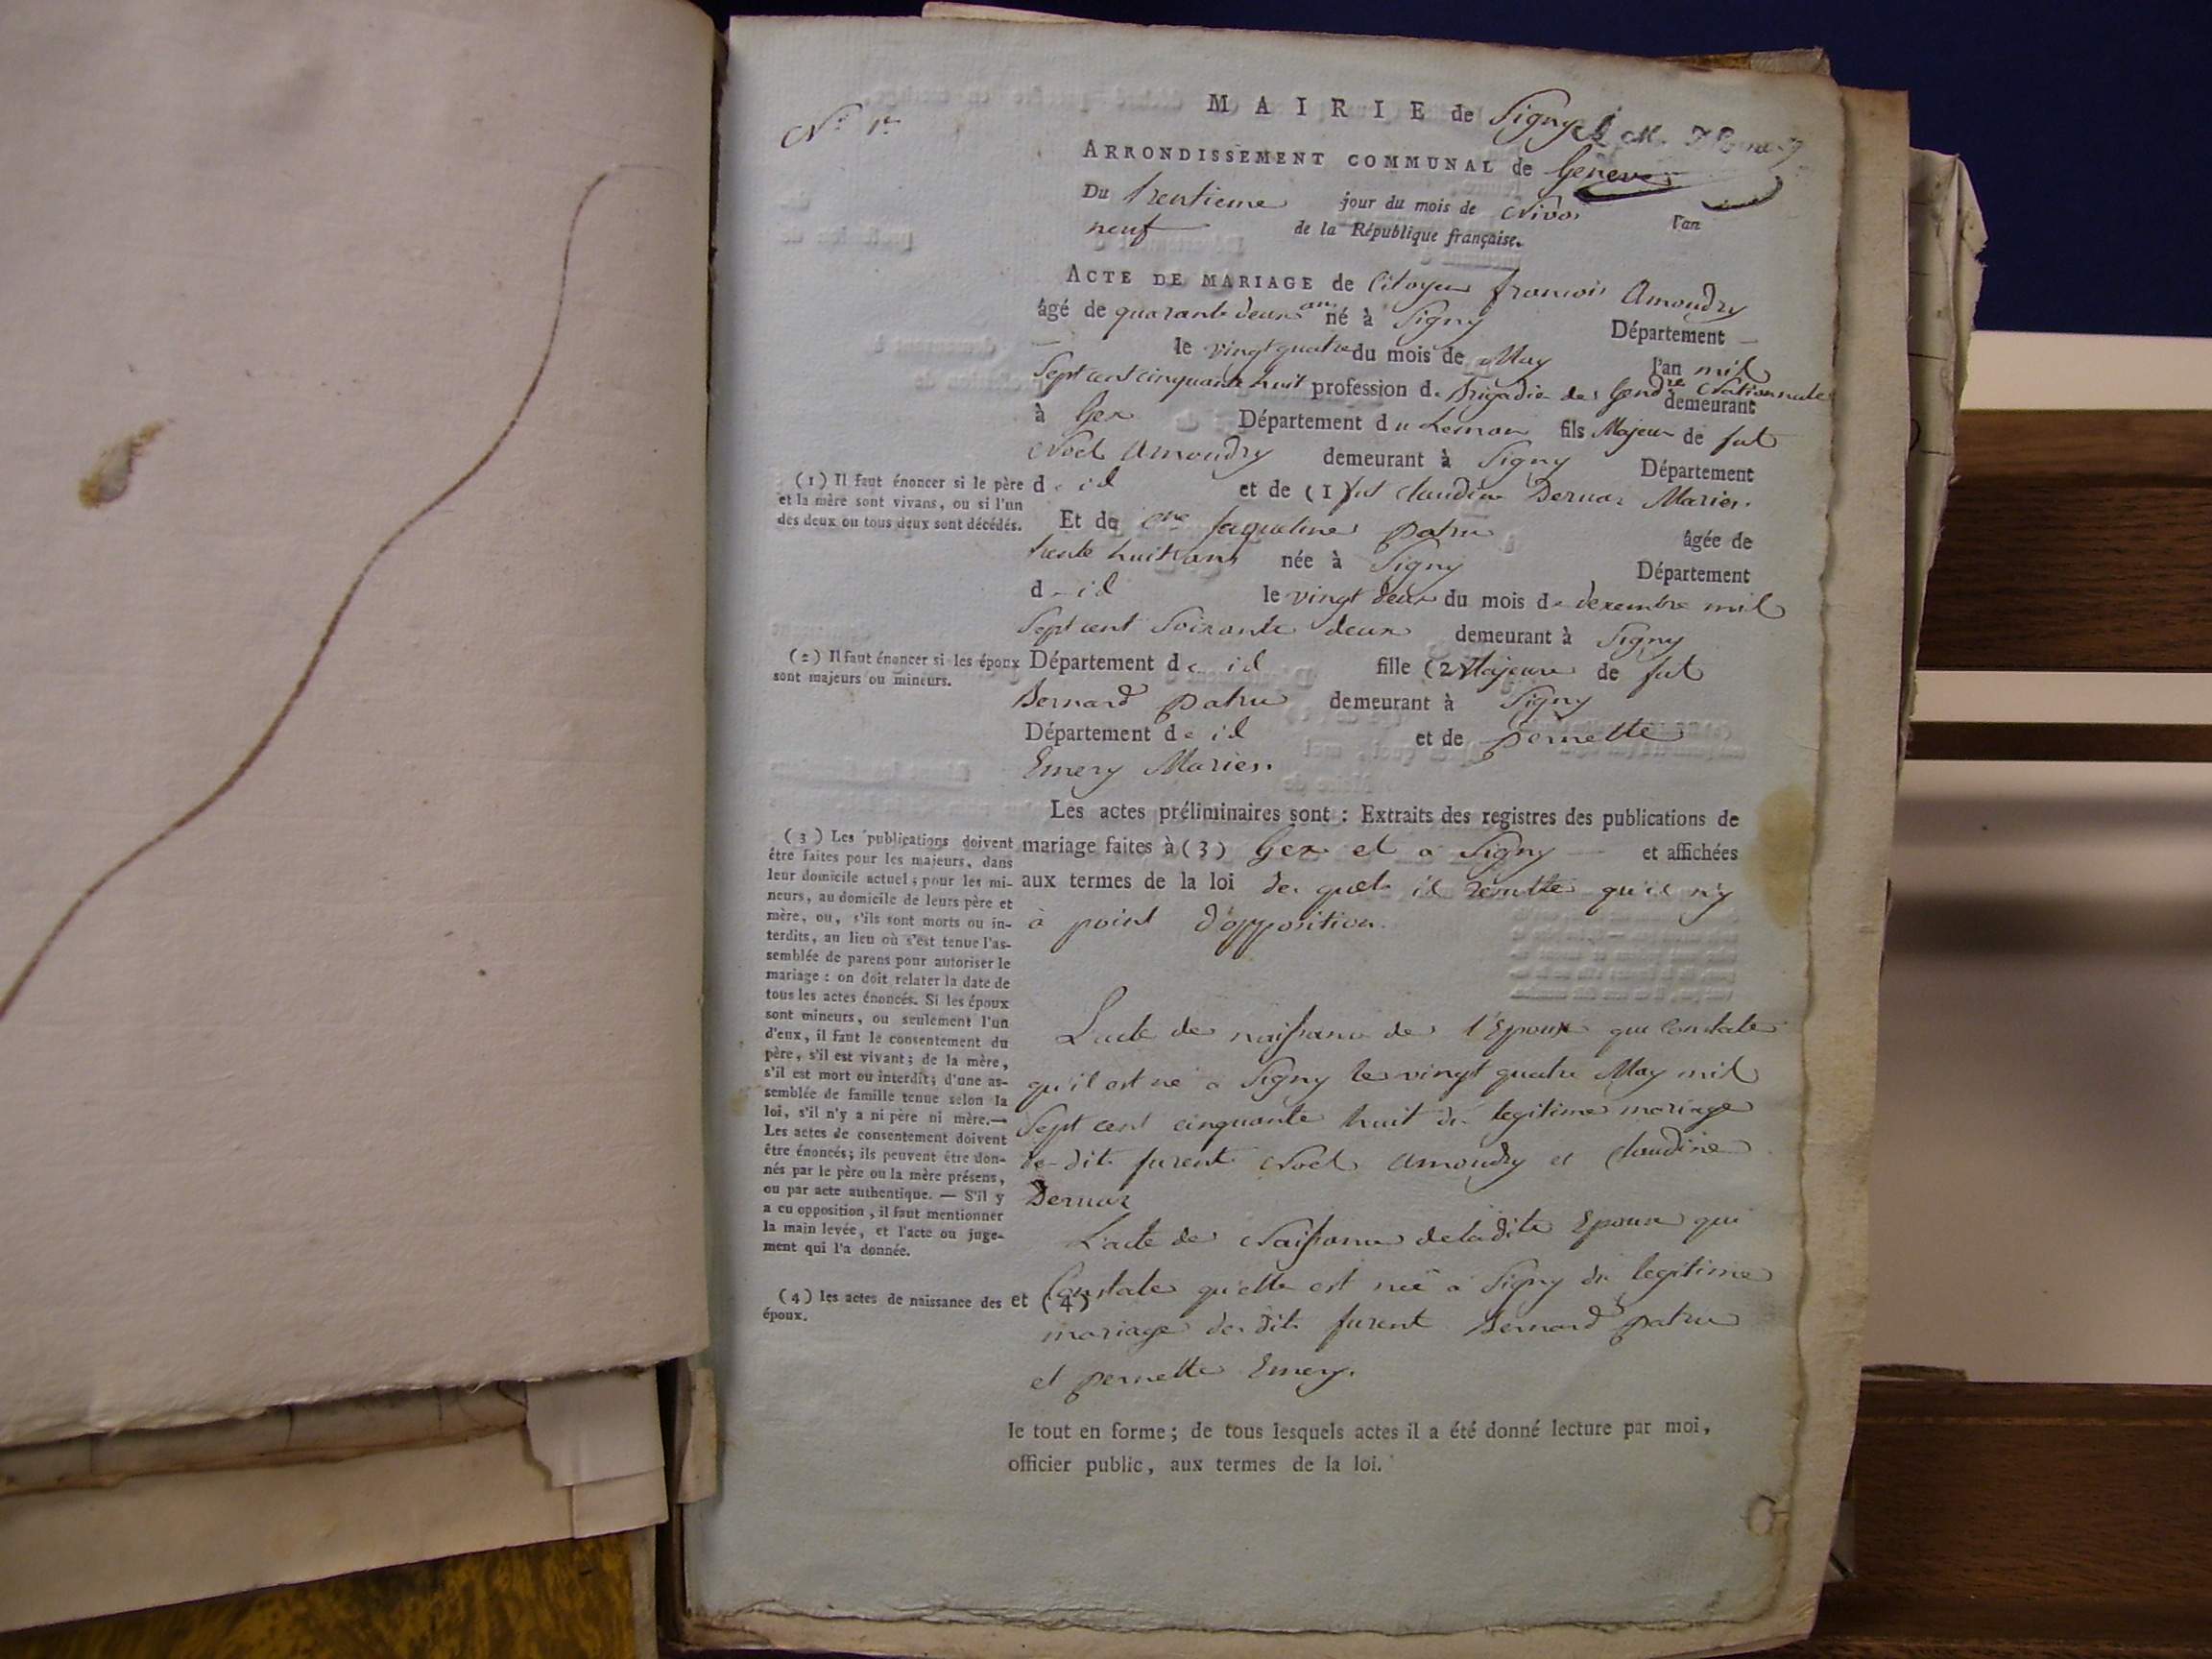 N.° 1er
MAIRIE de Signy
ARRONDISSEMENT COMMUNAL de Geneve
Du trentieme jour du mois de Nivos l'an
neuf de la République française.
ACTE DE MARIAGE de Citoyen francois Amoudry
âgé de quarante deux ans né à Signy Département
le vingt quatre du mois de May l'an mil
Sept cent cinquante huit profession de Brigadier des Gendre Nationnale demeurant
à Gex Département du Leman fils Majeur de fut
Noel Amoudry demeurant à Signy Département
de id et de (1) fut claudine Dernaz Mariés.
Et de jaqueline patru âgée de
trente huit ans née à Signy Département
de id le vingt deux du mois de dexembre mil
Sept cent Soixante deux demeurant à Signy
Département de id fille (2) Majeure de fut
Bernard patru demeurant à Signy
Département de id et de pernette
Emery Mariés.
Les actes préliminaires sont : Extraits des registres des publications de
mariage faites à (3) Gex et a Signy et affichées
aux termes de la loi des quels il resulte qu'il n'y
à point d'opposition.
L'acte de naissance de l'Epoux qui constate
qu'il est né a Signy le vingt quatre May mil
Sept cent cinquante huit du legitime mariage
des dits furent Noel Amoudry et Claudine
Dernaz
L'acte de Naissance de ladite Epouse qui
et (4) Constate qu'elle est neé a Signy du legitime
mariage des dits furent Bernard patru
et pernette Emery.
le tout en forme ; de tous lesquels actes il a été donné lecture par moi,
officier public, aux termes de la loi.
(1) Il faut énoncer si le père
et la mère sont vivans, ou si l'un
des deux ou tous deux sont décédés.
(2) Il faut énoncer si les époux
sont majeurs ou mineurs.
(3) Les publications doivent
être faites pour les majeurs, dans
leur domicile actuel ; pour les mi-
neurs, au domicile de leurs père et
mère, ou, s'ils sont morts ou in-
terdits, au lieu où s'est tenue l'as-
semblée de parens pour autoriser le
mariage : on doit relater la date de
tous les actes énoncés. Si les époux
sont mineurs, ou seulement l'un
d'eux, il faut le consentement du
père, s'il est vivant ; de la mère,
s'il est mort ou interdit ; d'une as-
semblée de famille tenue selon la
loi, s'il n'y a ni père ni mère.—
Les actes de consentement doivent
être énoncés ; ils peuvent être don-
nés par le père ou la mère présens,
ou par acte authentique. — S'il y
a eu opposition, il faut mentionner
la main levée, et l'acte ou juge-
ment qui l'a donnée.
(4) les actes de naissance des
époux.